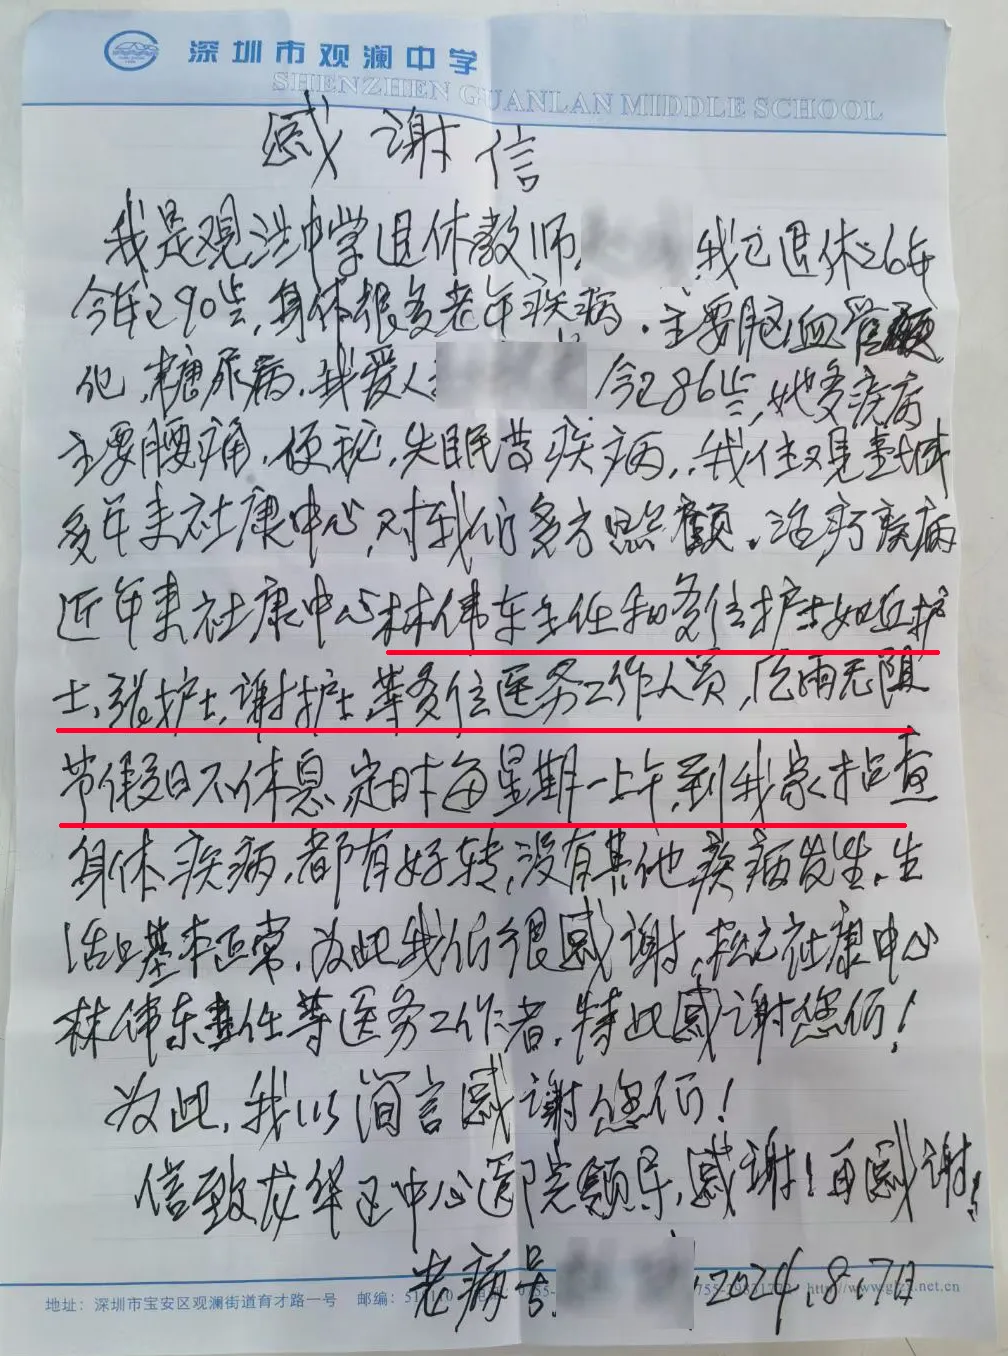 深圳市观澜中学
SHENZHEN GUANLAN MIDDLE SCHOOL
感谢信
我是观澜中学退休教师 我已退休26年
今年已90岁,身体很多老年疾病.主要脑血管
他,糖尿病.我爱人 今已86岁,她多疾病
主要腰痛.便秘.失眠等疾病,.我住
多年来社康中心,对我们多方照顾.治疗疾病
近年来社康中心林伟东主任和多位护士如丘护
士、张护士.谢护士等多位医务工作人员,风雨无阻
节假日不休息,定时每星期一上午,到我家检查
身体疾病.都有好转,没有其他疾病发生.生
活上基本正常.为此我们很感谢,松元社康中心
林伟东主任等医务工作者.特此感谢您们!
为此,我以简言感谢您们!
信致龙华区中心医院领导,感谢!再感谢!
老病号 2024.8.7日
地址:深圳市宝安区观澜街道育才路一号 邮编: